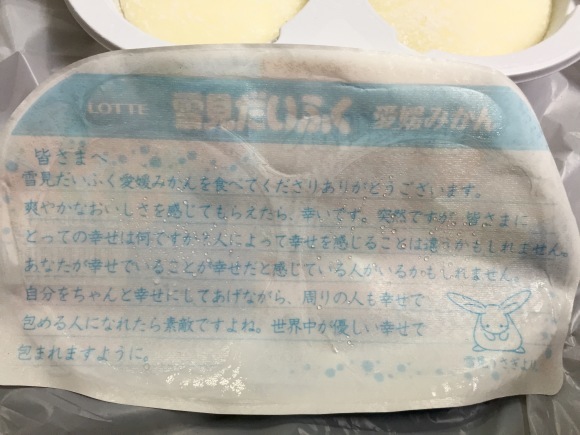 LOTTE 雪見だいふく 愛媛みかん
皆さまへ
雪見だいふく愛媛みかんを食べてくださりありがとうございます。
爽やかなおいしさを感じてもらえたら、幸いです。突然ですが、皆さまに
とっての幸せは何ですか?人によって幸せを感じることは違うかもしれません。
あなたが幸せでいることが幸せだと感じている人がいるかもしれません。
自分をちゃんと幸せにしてあげながら、周りの人も幸せで
包める人になれたら素敵ですよね。世界中が優しい幸せで
包まれますように。
雪見うさぎより